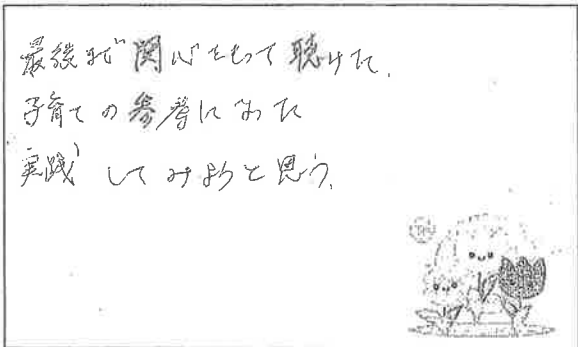 最後まで関心をもって聴けた.
子育ての参考になった
実践してみようと思う.